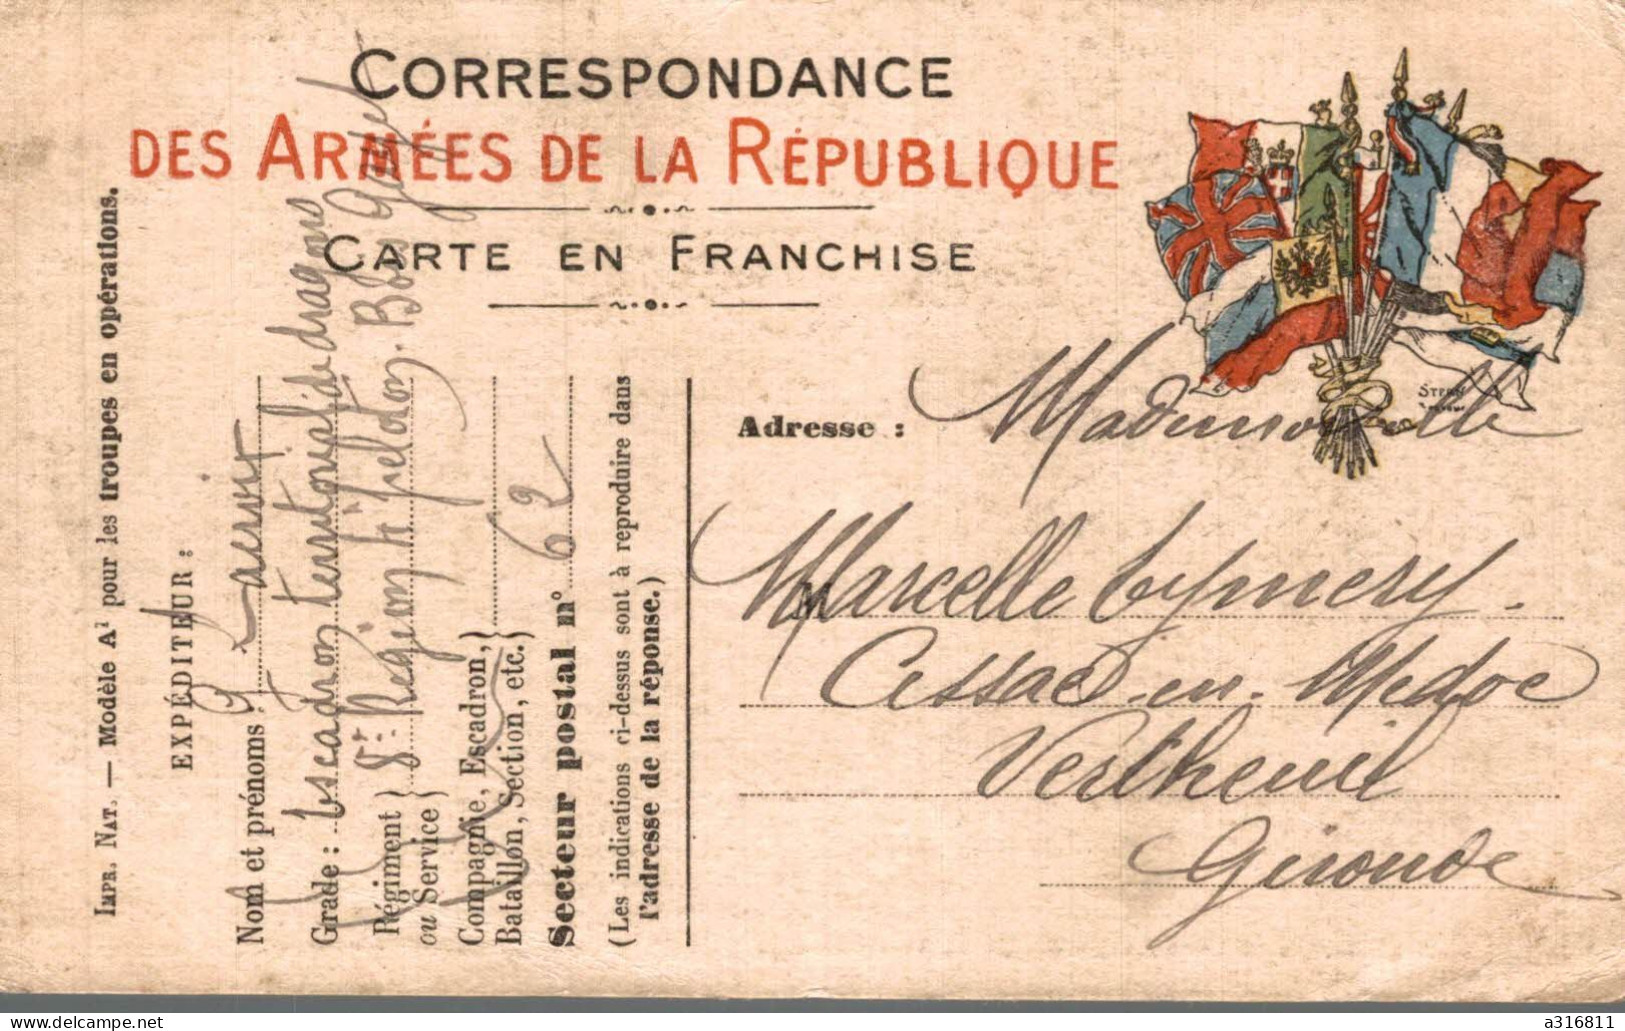 CORRESPONDANCE
DES ARMÉES DE LA RÉPUBLIQUE
CARTE EN FRANCHISE
IMPR. NAT. — Modèle A¹ pour les troupes en opérations.
EXPÉDITEUR :
Nom et prénoms
Grade : Escadron territorial de dragons
Régiment } 8e Region
ou Service }
Compagnie, Escadron, }
Bataillon, Section, etc. }
Secteur postal n° 62
(Les indications ci-dessus sont à reproduire dans
l'adresse de la réponse.)
STERN
Adresse : Mademoiselle
Marcelle Eymery.
Cissac-en-Medoc
Vertheuil
Gironde
delcampe.net
a316811